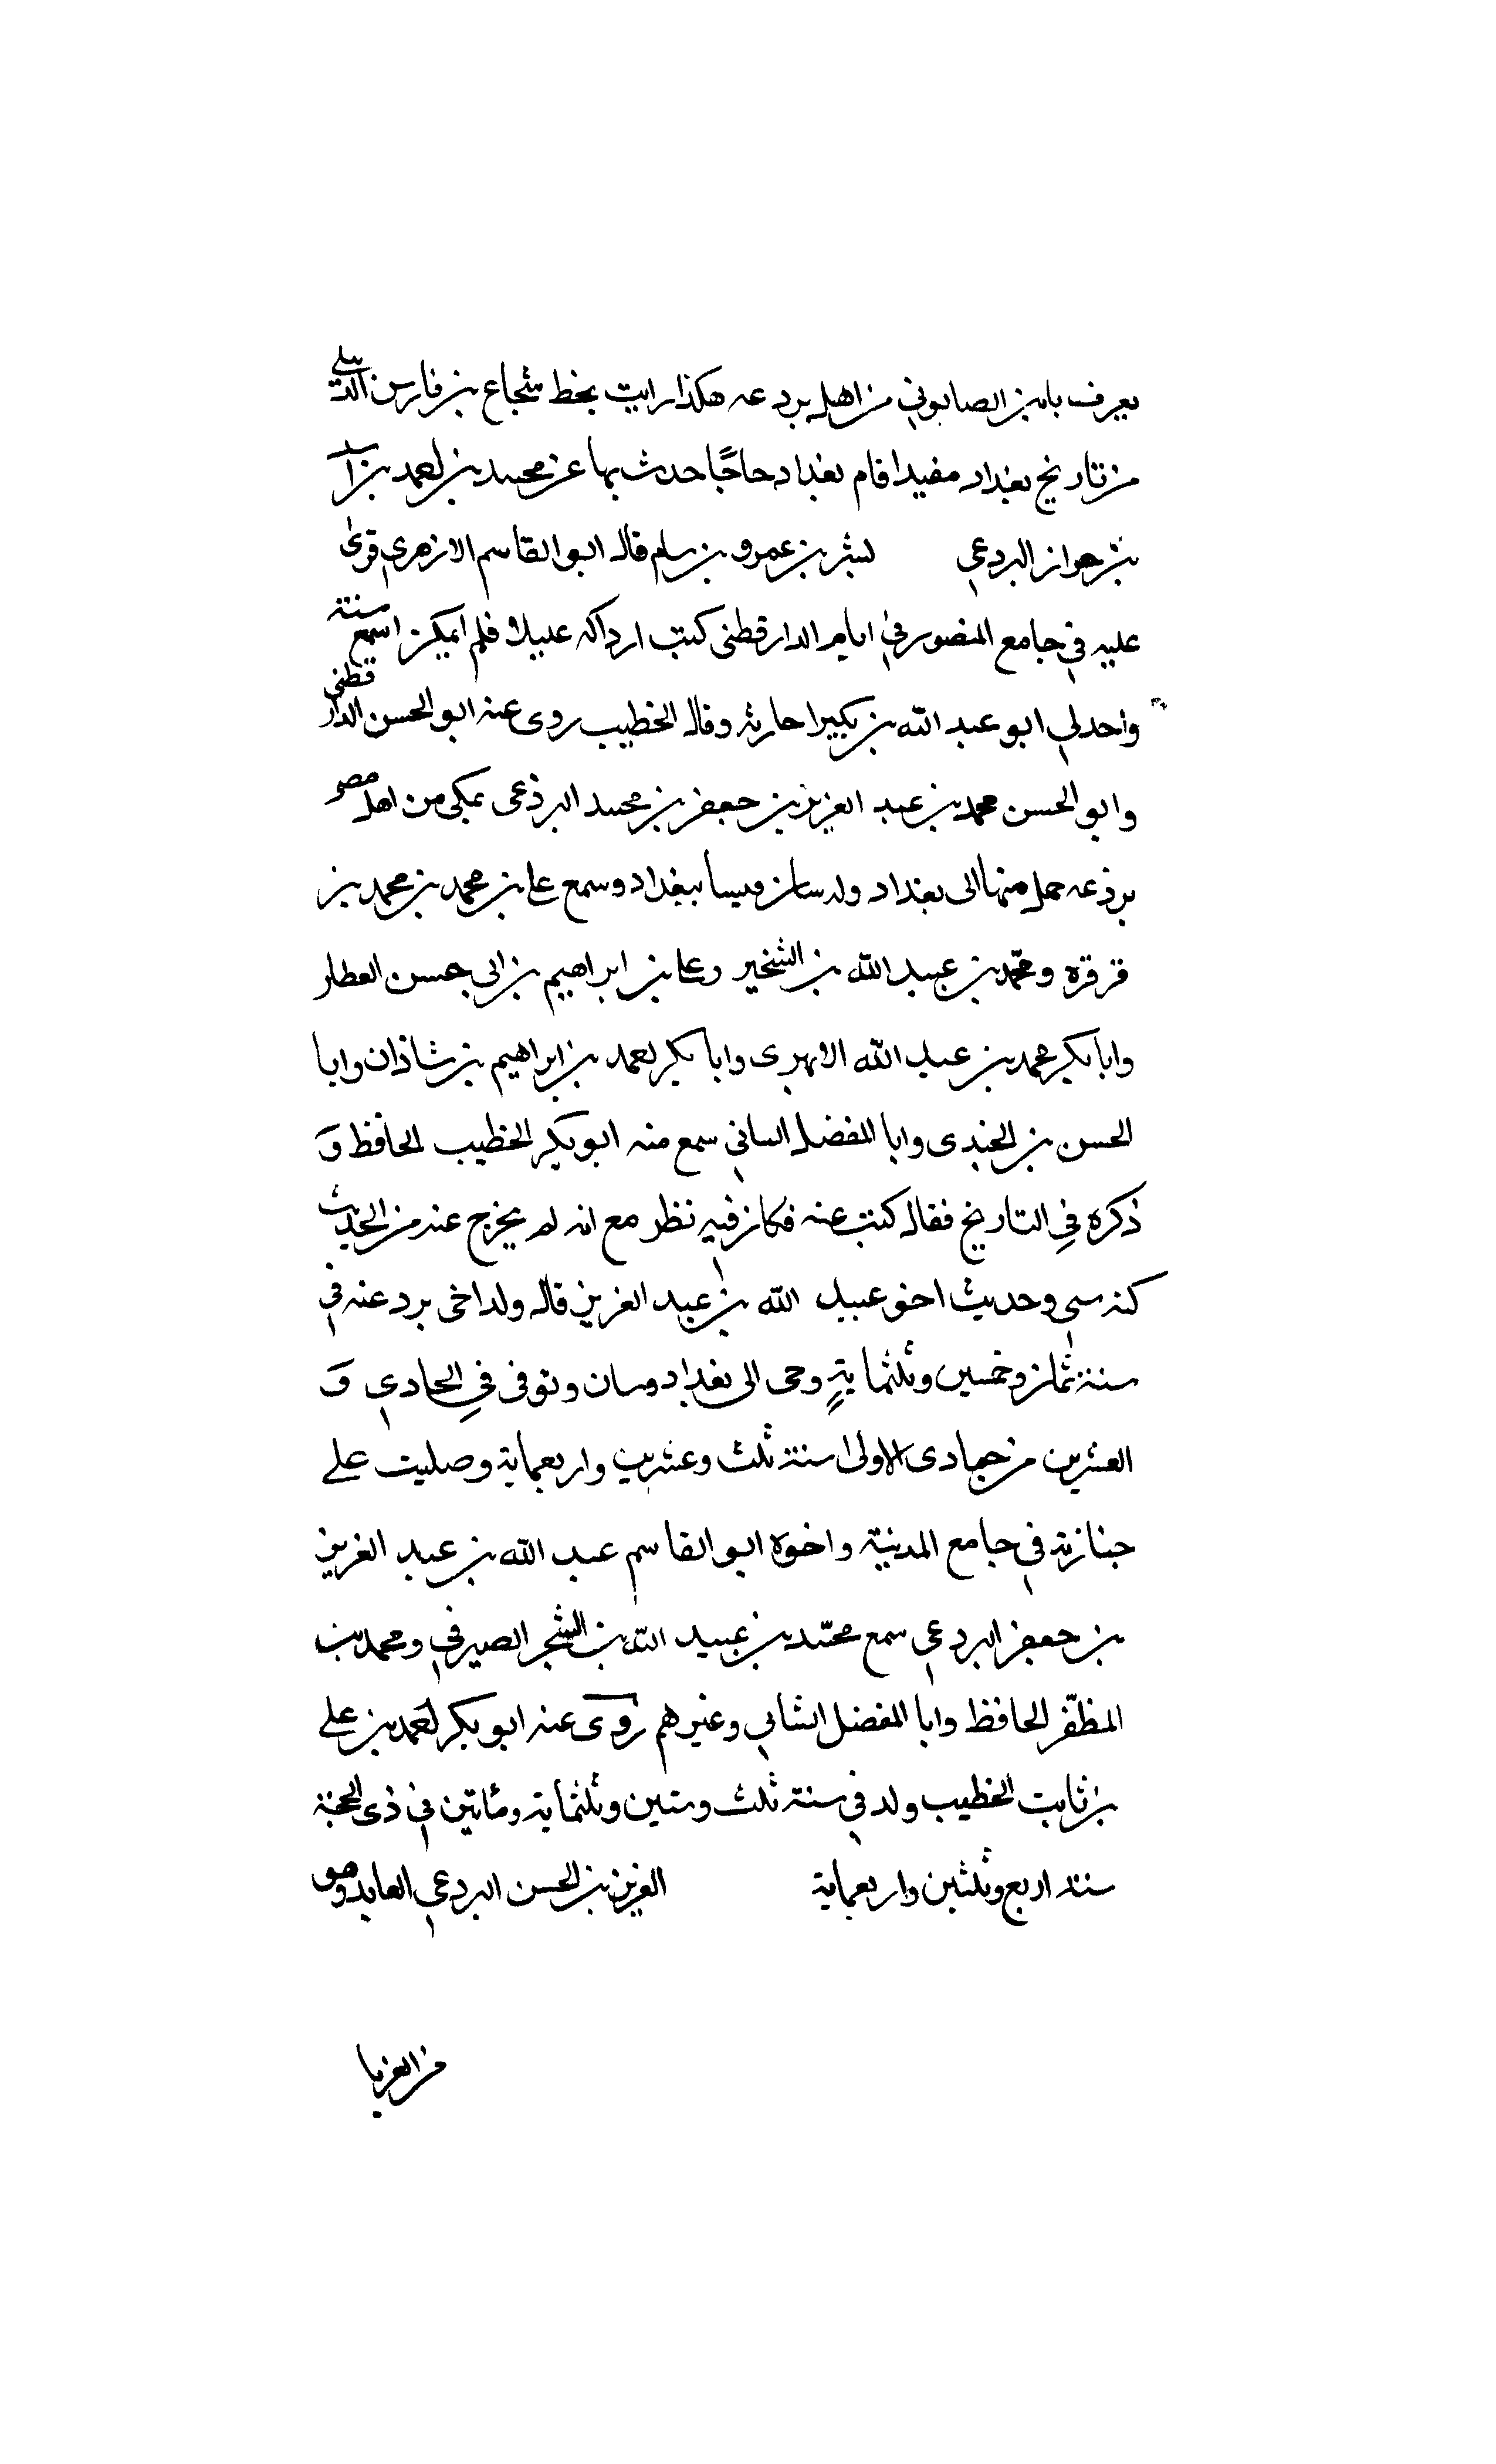 يعرف بابن الصابوني من اهل بردعه هكذا رايت بخط شجاع بن فارس الذهلي
من تاريخ بغداد مفيدا قام بغداد حاجًا حدث بها عن محمد بن احمد بن
بن البردعي بشر بن عمرو بن سام قال ابو القاسم الازهري قرى
عليه في جامع المنصور في ايام الدارقطني كنت اراه عليلا فلم اسمع منه
واحد لي ابو عبد الله بن بكير احاديثه وقال الخطيب روى عنه ابو الحسن الدارقطني
وابو الحسن محمد بن عبد العزيز بن جعفر بن محمد البرذعي مكي من اهل
برذعه حمل منها الى بغداد ولد ببغداد وسمع على بن محمد بن محمد بن
قرقره ومحمد بن عبيد الله بن الشخير وعلى بن ابراهيم بن ابي حسن العطار
وابا بكر محمد بن عبد الله الابهري وابا بكر احمد بن ابراهيم بن شاذان وابا
الحسن بن الجندى وابا المفضل الساني سمع منه ابو بكر الخطيب الحافظ وَ
ذكره فِي التاريخ فقال كتبت عنه فكان فيه نظر مع انه لم يخرج عنه من الحديث
وحديث عبيد الله بن عبد العزيز قال ولد اخى بردعنه في
سنة ثمان وخمسين وثلثمايةٍ الى بغداد وتوفى فِي الحادي وَ
العشرين من جمادى الاولى سنة ثلث وعشرين واربعماية وصليت على
جنازته في جامع المدينة واخوه ابو القاسم عبد الله بن عبد العزيز
بن جعفر البردعي سمع محمّد بن عبيد الله بن الشخير الصيرفي ومحمد بن
المظفّر الحافظ وابا المفضل الشاني وغيرهم روى عنه ابو بكر احمد بن على
بن ثابت الخطيب ولد في سنة ثلث وستين وثلثماية ومات في ذى الحجة
سنة اربع وثلثين واربعماية العزيز بن الحسن البردعي العابد وهو
من الغربا